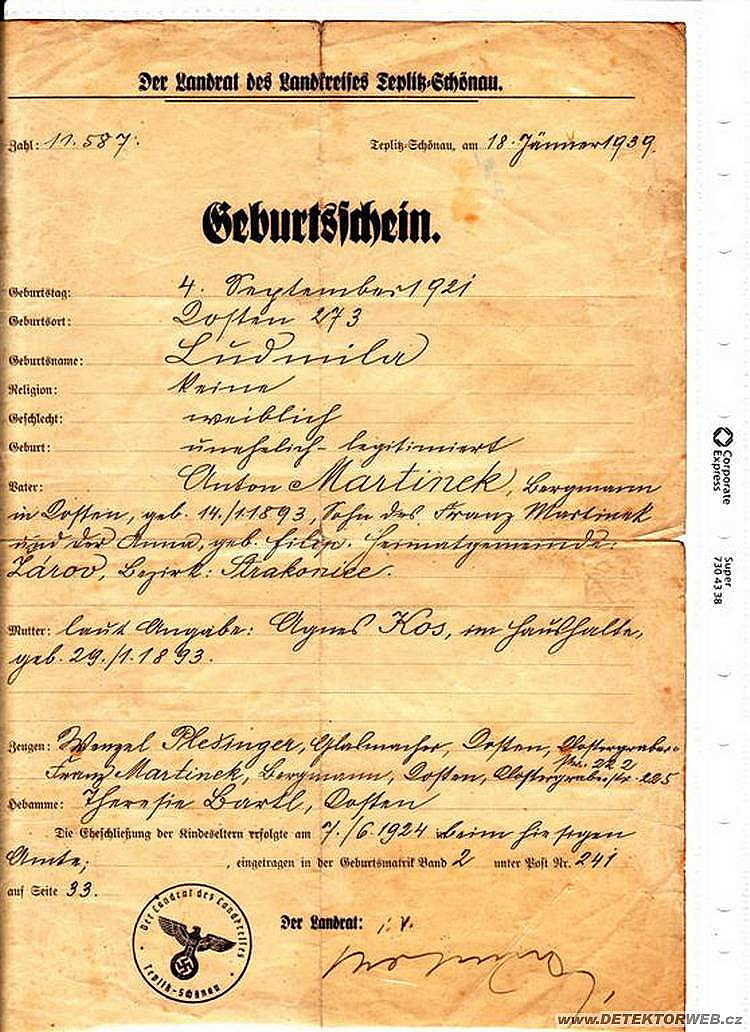 Der Landrat des Landkreises Teplitz-Schönau.
Zahl: 11.587.
Teplitz-Schönau, am 18. Jänner 1939.
Geburtsschein.
Geburtstag: 4. September 1921
Geburtsort: Dosten 273
Geburtsname: Ludmila
Religion: keine
Geschlecht: weiblich
Geburt: unehelich - legitimiert
Vater: Anton Martinek, Bergmann
in Dosten, geb. 14./1.1893, Sohn des Franz Martinek
und der Anna, geb. Filip. Heimatgemeinde:
Zárov, Bezirk: Strakonice.
Mutter: laut Angabe: Agnes Kos, im Haushalte,
geb. 29./1.1893.
Zeugen: Wenzel Plesinger, Glasmacher, Dosten,
Str. 222
Franz Martinek, Bergmann, Dosten, 225
Hebamme: Theresie Bartl, Dosten
Die Eheschließung der Kindeseltern erfolgte am 7./6.1924 beim hiesigen
Amte; , eingetragen in der Geburtsmatrik Band 2 unter Post Nr. 241
auf Seite 33.
Der Landrat: i.V.
Der Landrat des Landkreises
Teplitz-Schönau
Corporate
Express
Super
730 43 38
www.DETEKTORWEB.cz